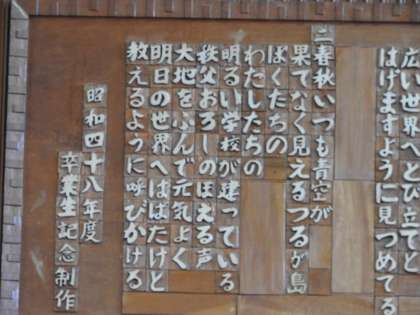 広い世界へとび立てと
はげますように見つめてる
三 春秋いつも青空が
果てなく見えるつるが島
ぼくたちの
わたしたちの
明るい学校が建っている
秩父おろしのほえる声
大地をふんで元気よく
明日の世界へはばたけと
教えるように呼びかける
昭和四十八年度
卒業生記念制作